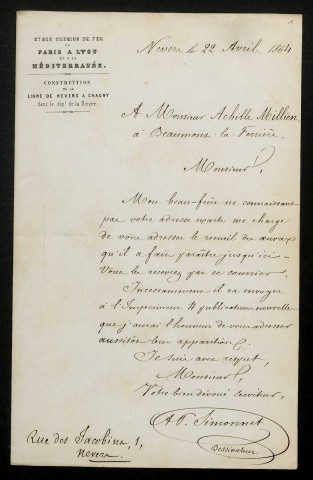 Cie DES CHEMINS DE FER
DE
PARIS A LYON
ET A LA
MÉDITERRANÉE.
CONSTRUCTION
DE LA
LIGNE DE NEVERS A CHAGNY
dans le dépt de la Nièvre
Nevers le 22 Avril 1864
A Monsieur Achille Millien
à Beaumont-la-Ferrière.
Monsieur,
Mon beau-frère ne connaissant
pas votre adresse exacte me charge
de vous adresser le recueil des œuvres
qu'il a fait paraître jusqu'ici –
Vous le recevrez par ce courrier.
Incessamment il va envoyer
à l'Imprimeur 4 publications nouvelles
que j'aurai l'honneur de vous adresser
aussitôt leur apparition.
Je suis avec respect,
Monsieur,
Votre bien dévoué serviteur,
Simonnet
Dessinateur
Rue des Jacobins, 1,
Nevers.